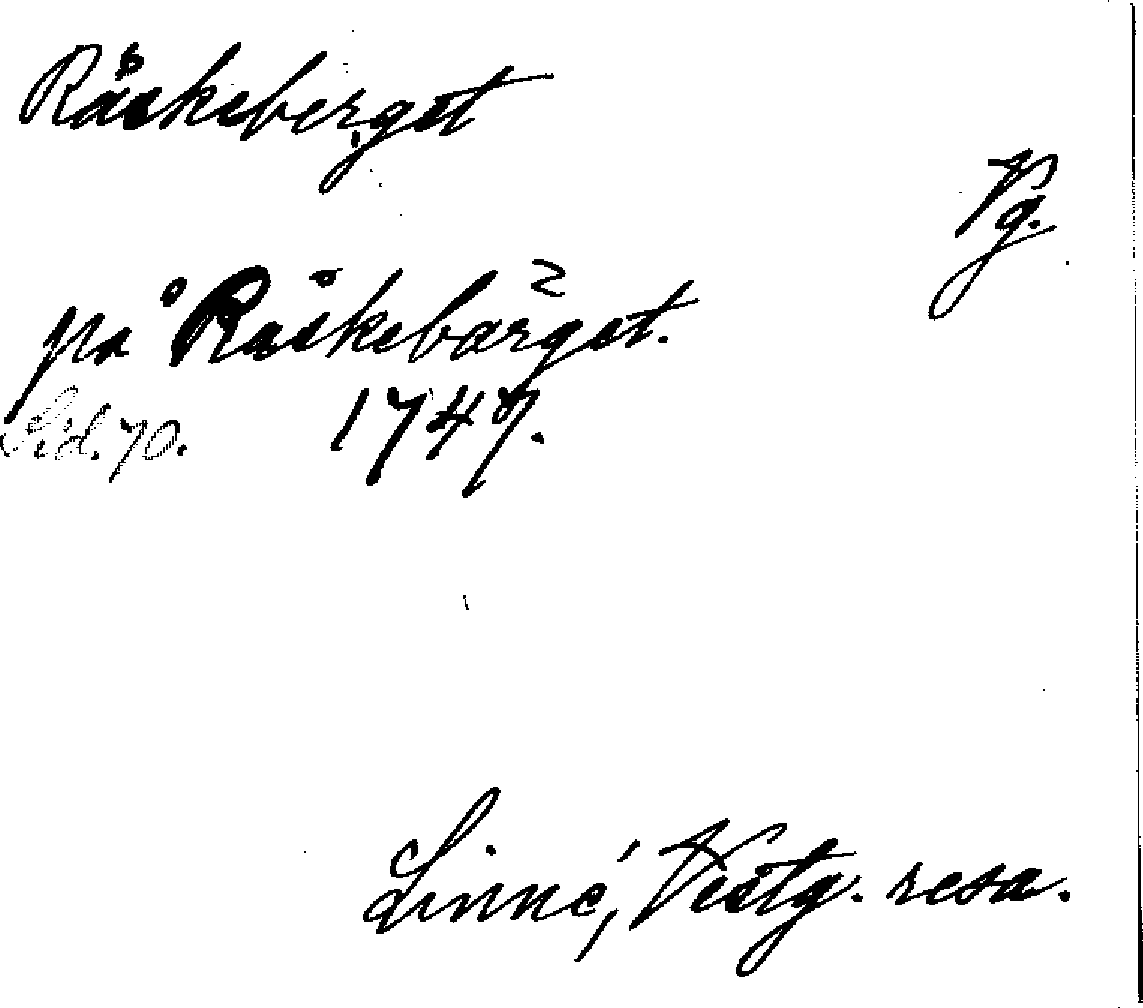 Råskeberget
Vg.
på Råskebärget.
Sid. 70. 1747.
Linné, Vestg. resa.